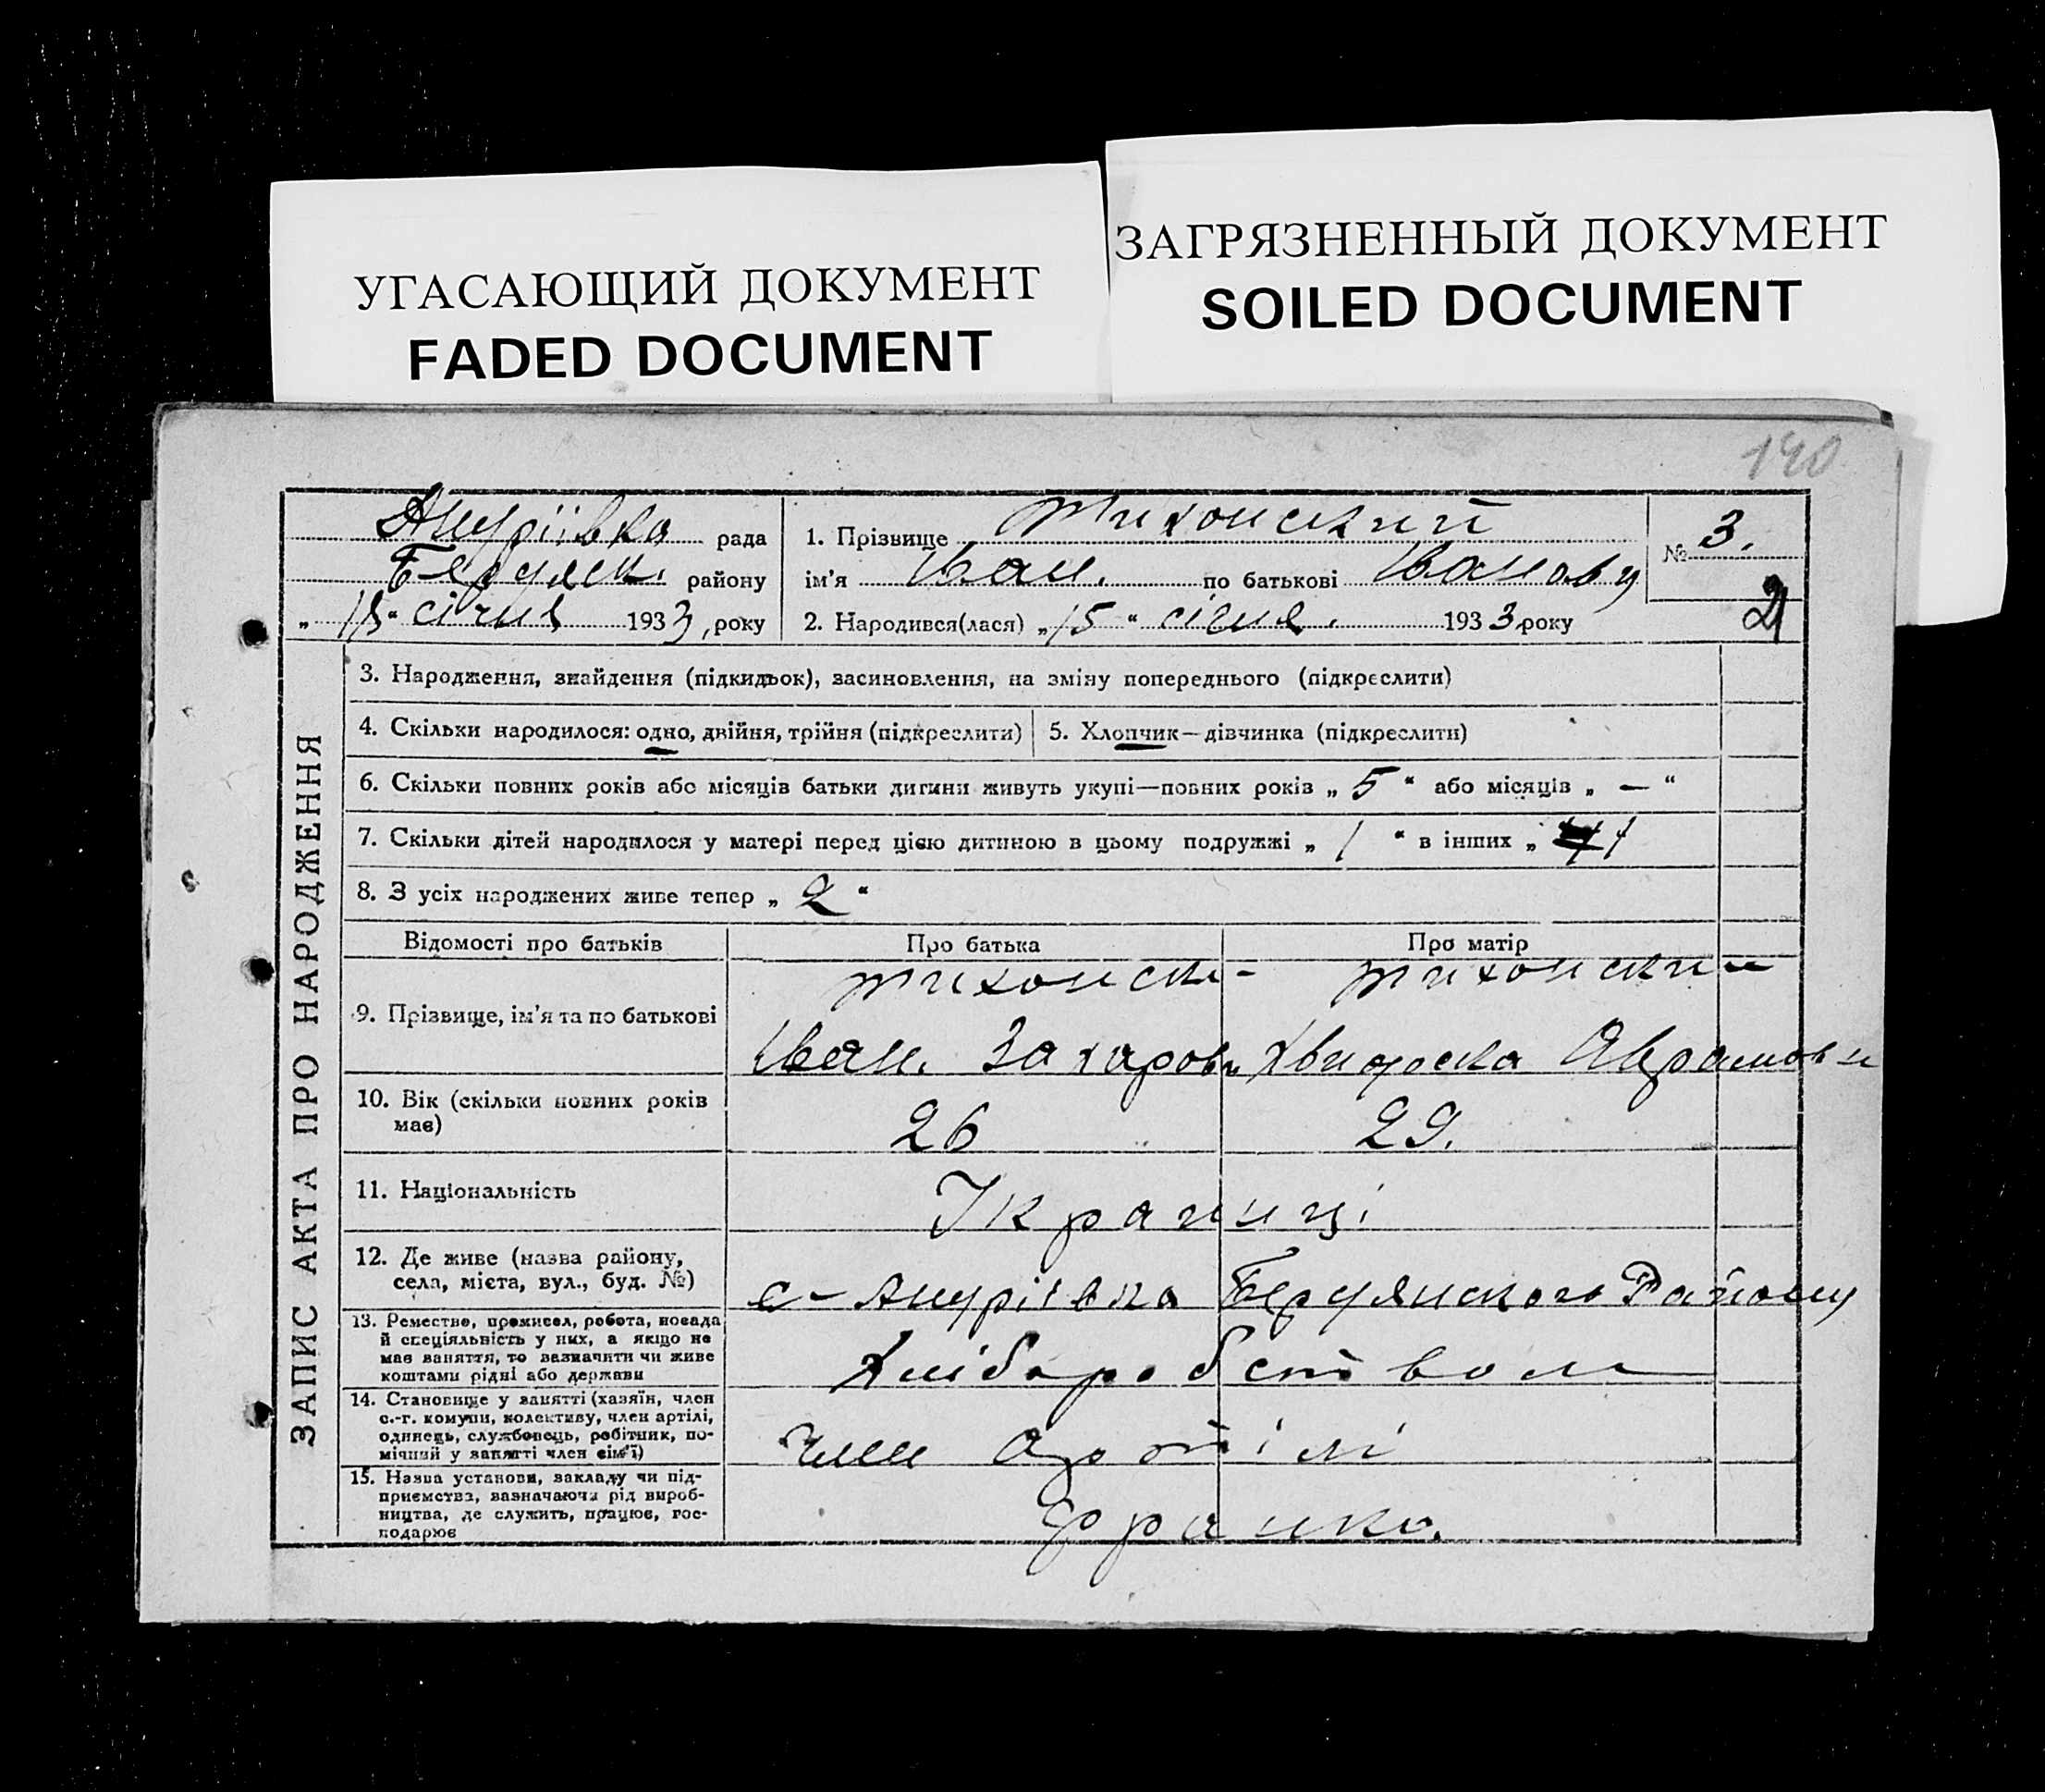 УГАСАЮЩИЙ ДОКУМЕНТ
FADED DOCUMENT
ЗАГРЯЗНЕННЫЙ ДОКУМЕНТ
SOILED DOCUMENT
190
рада
району
" січня 1933, року
1. Прізвище Тихонский
ім'я Іван. по батькові Іванович
2. Народився(лася) „15" січня. 1933 року
№ 3.
2
ЗАПИС АКТА ПРО НАРОДЖЕННЯ
3. Народження, знайдення (підкидьок), засиновлення, на зміну попереднього (підкреслити)
4. Скільки народилося: одно, двійня, трійня (підкреслити)
5. Хлопчик—дівчинка (підкреслити)
6. Скільки повних років або місяців батьки дитини живуть укупі—повних років „ 5 " або місяців „ — "
7. Скільки дітей народилося у матері перед цією дитиною в цьому подружжі „ 1 " в інших „ 1
8. З усіх народжених живе тепер „ 2 "
Відомості про батьків
Про батька
Про матір
9. Прізвище, ім'я та по батькові
Іван. Захарови
10. Вік (скільки повних років
має)
26
29.
11. Національність
12. Де живе (назва району,
села, міста, вул., буд. №)
13. Ремество, промисел, робота, посада
й спеціяльність у них, а якщо не
має заняття, то зазначити чи живе
коштами рідні або держави
Хліборобством
14. Становище у занятті (хазяїн, член
с.-г. комуни, колективу, член артілі,
одинець, службовець, робітник, по-
мічний у занятті член сім'ї)
член артілі
15. Назва установи, закладу чи під-
приємства, зазначаючи рід вироб-
ництва, де служить, працює, гос-
подарює
Франка.